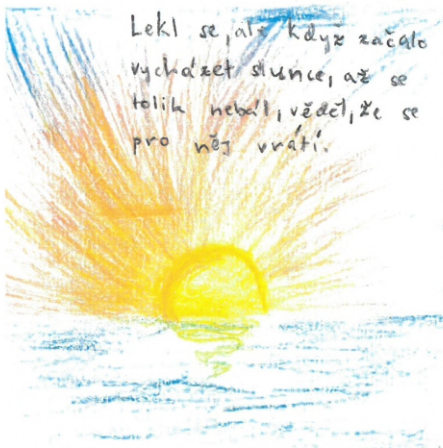 Lekl se, ale když začalo
vycházet slunce, až se
tolik nebál, věděl, že se
pro něj vrátí.